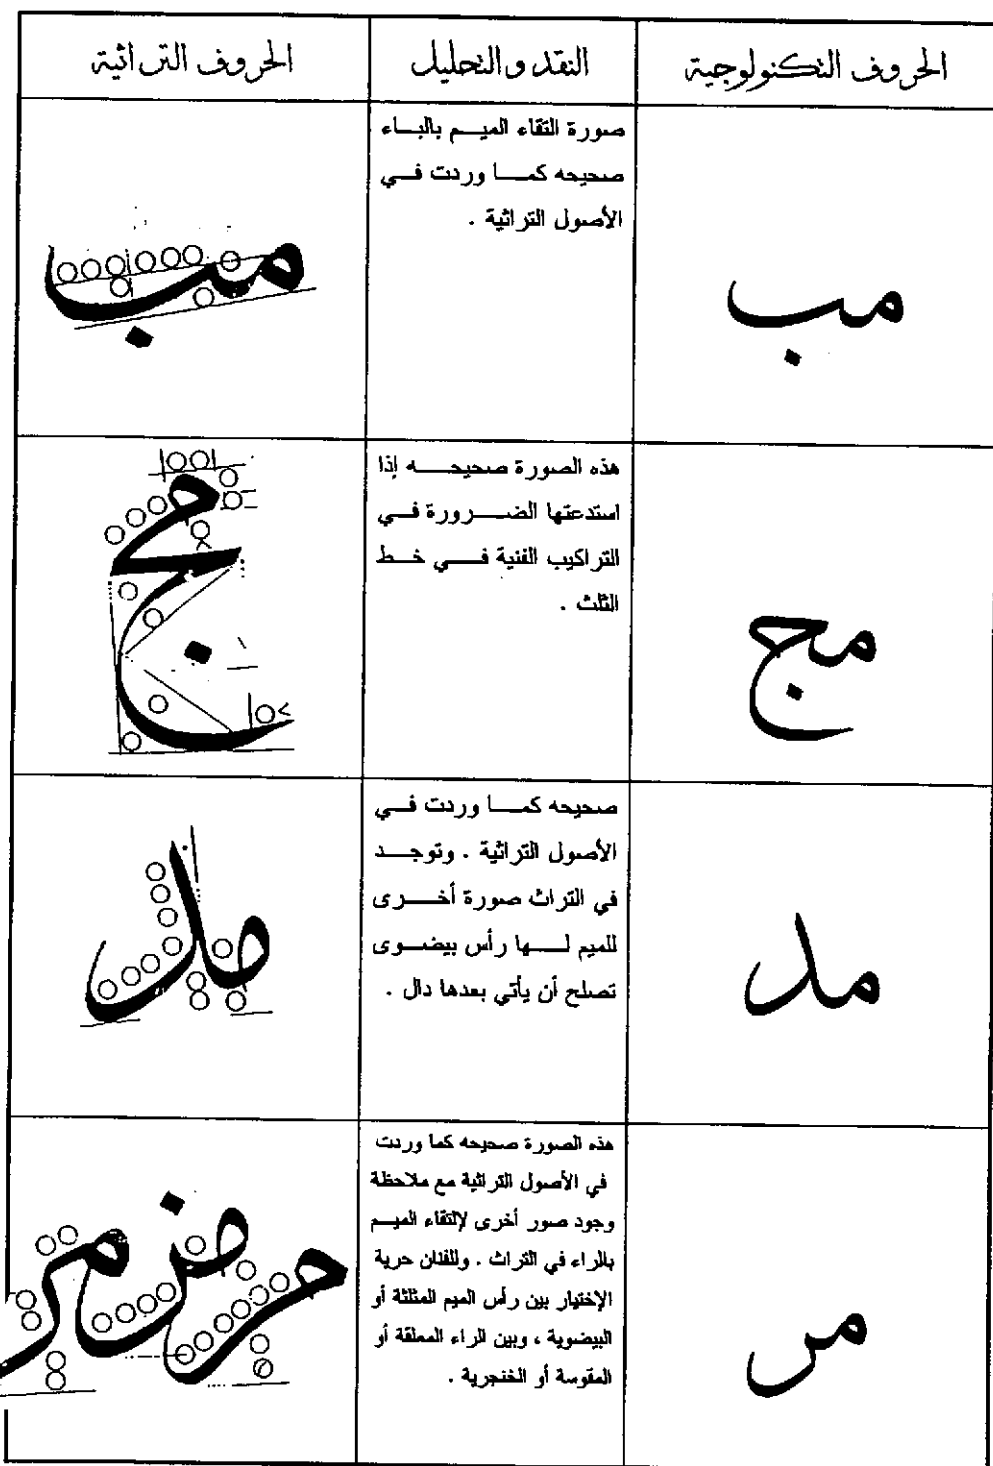 الحروف التكنولوجية
النقد والتحليل
الحروف التراثية
مب
صورة التقاء الميم بالباء
صحيحه كما وردت في
الأصول التراثية .
مب
مج
هذه الصورة صحيحه إذا
استدعتها الضرورة في
التراكيب الفنية في خط
الثلث .
مج
مد
صحيحه كما وردت في
الأصول التراثية . وتوجد
في التراث صورة أخرى
للميم لها رأس بيضوى
تصلح أن يأتي بعدها دال .
مد
مر
هذه الصورة صحيحه كما وردت
في الأصول التراثية مع ملاحظة
وجود صور أخرى لإلتقاء الميم
بالراء في التراث . وللفنان حرية
الإختيار بين رأس الميم المثلثة أو
البيضوية ، وبين الراء المعلقة أو
المقوسة أو الخنجرية .
مر مز مر